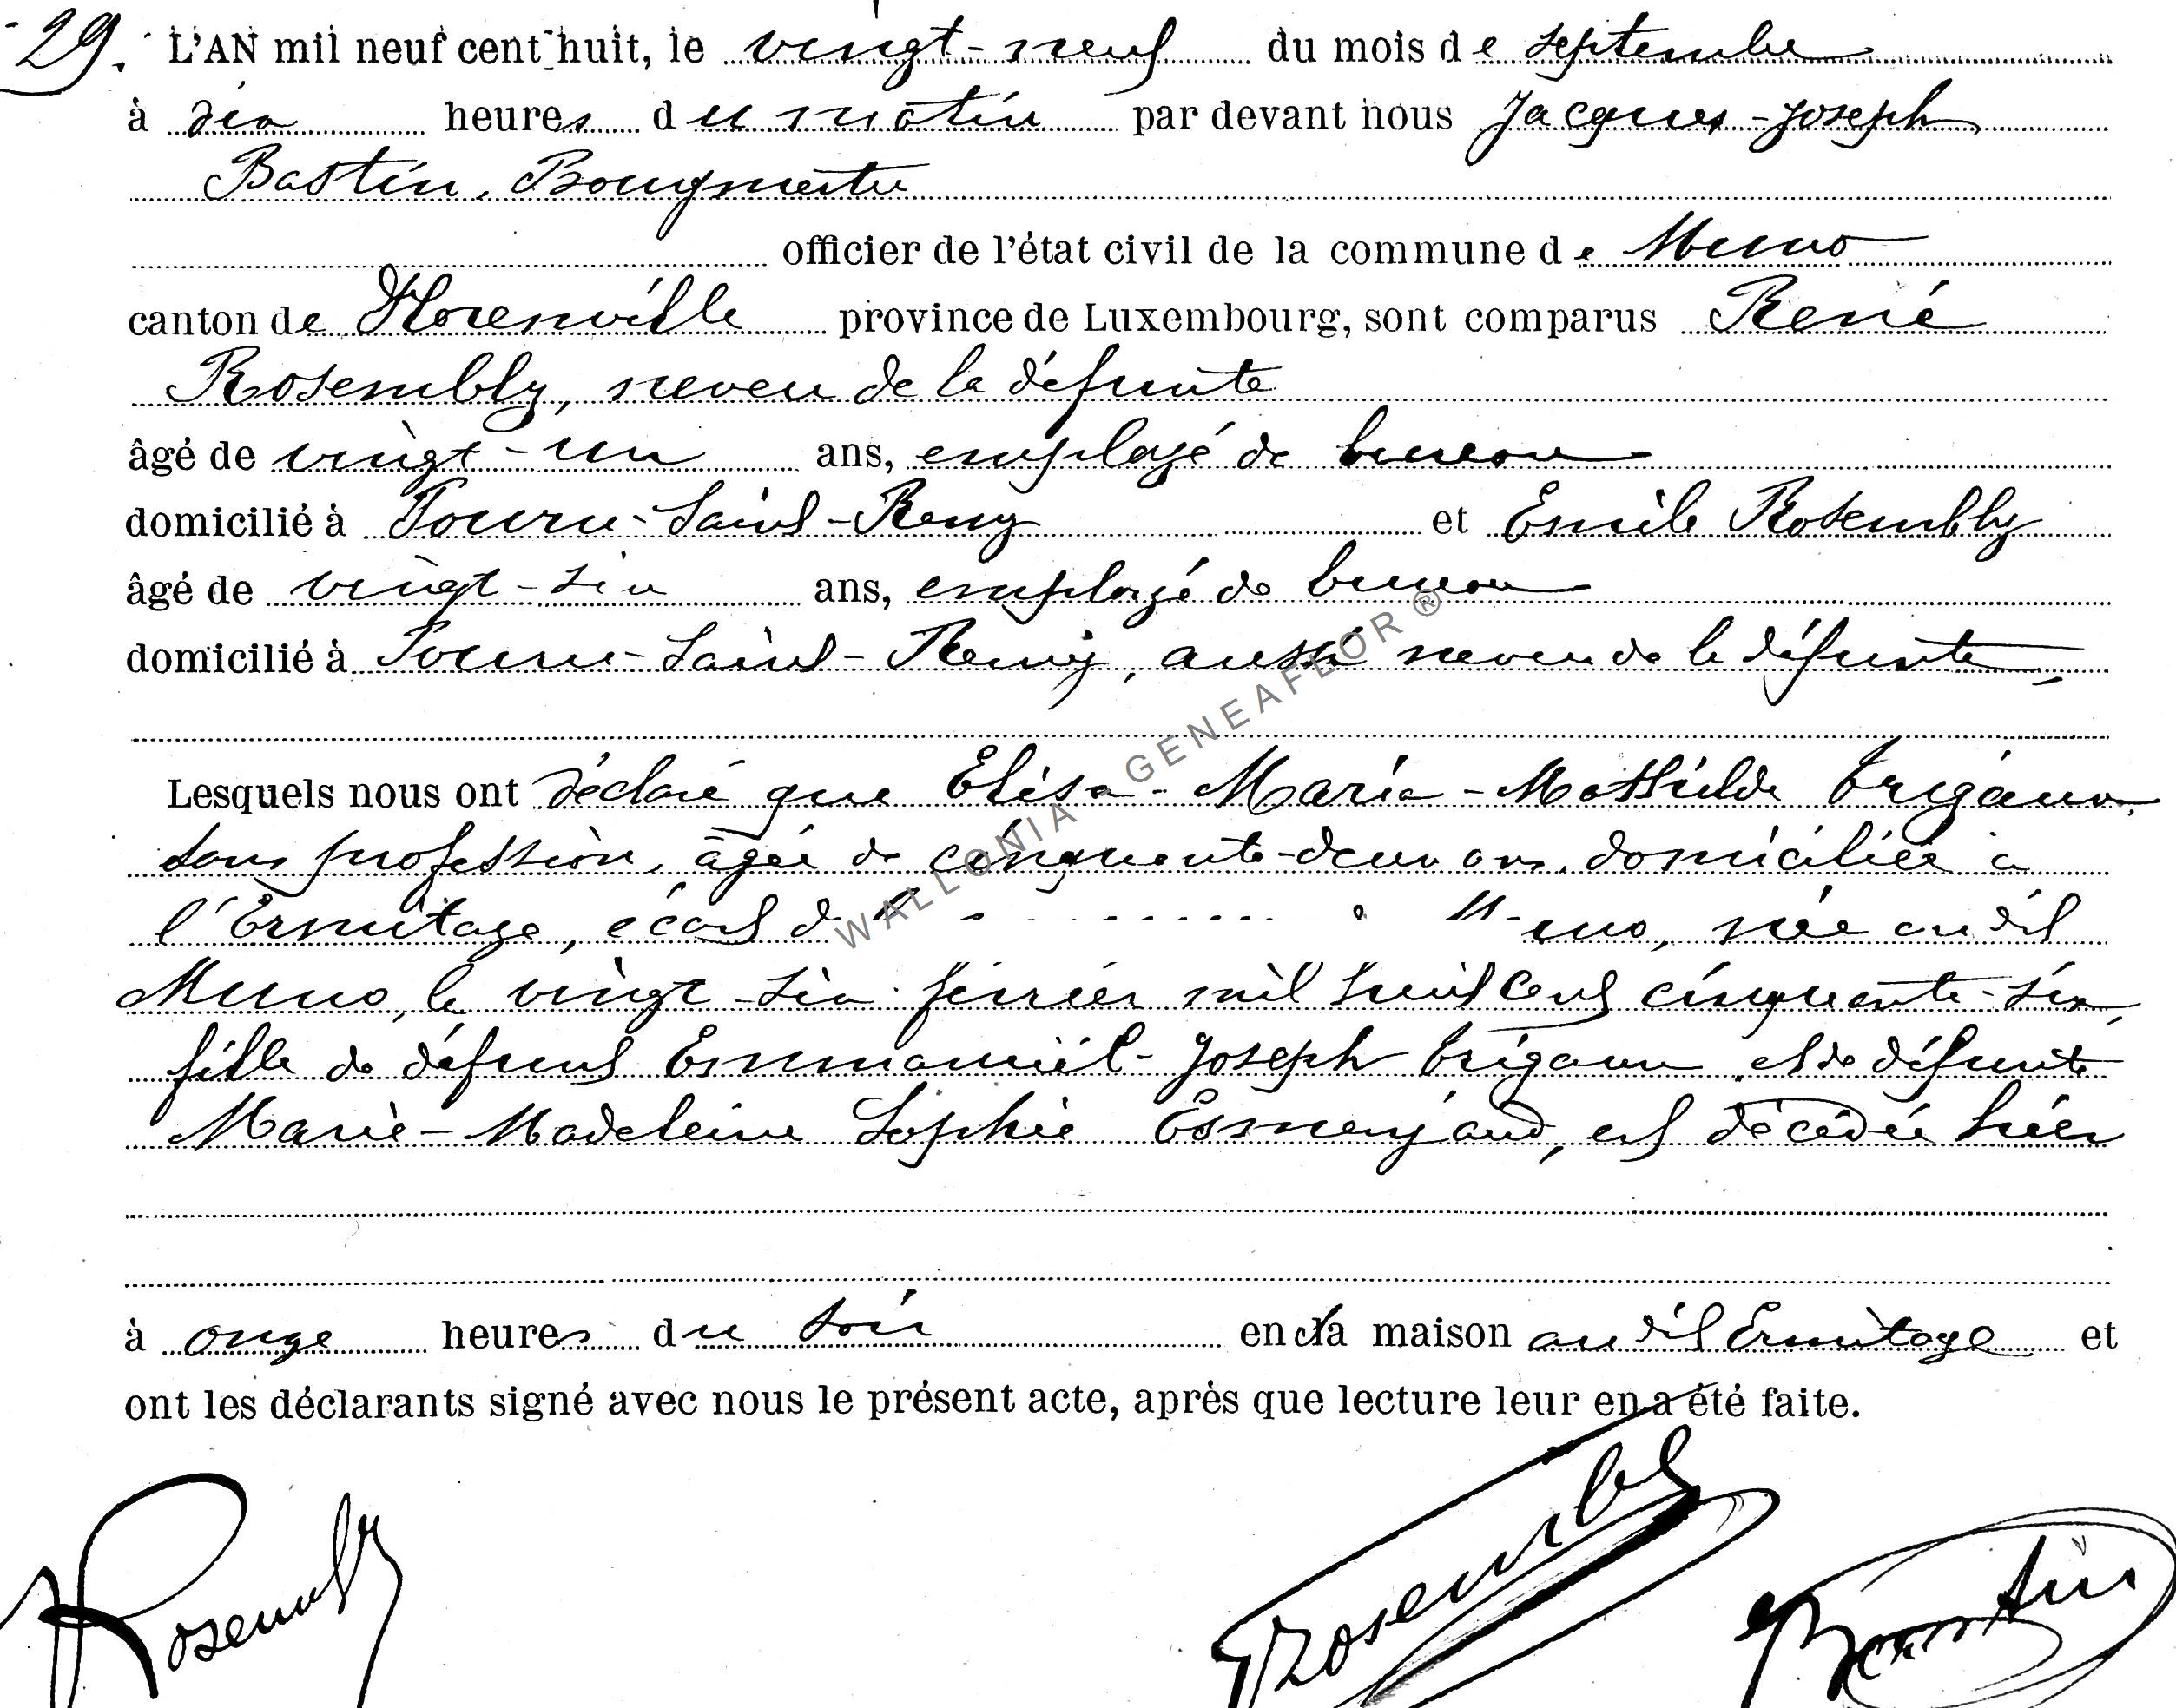 29. L'AN mil neuf cent huit, le vingt-neuf du mois de septembre
à dix heures du matin par devant nous Jacques-Joseph
Bastin, Bourgmestre
officier de l'état civil de la commune de Muno
canton de Florenville province de Luxembourg, sont comparus René
Rosembly, neveu de la défunte
âgé de vingt-un ans, employé de bureau
domicilié à Pouru-Saint-Remy et Emile Rosembly
âgé de vingt-six ans, employé de bureau
domicilié à Pouru-Saint-Remy, aussi neveu de la défunte,
Lesquels nous ont déclaré que Elisa-Maria-Mathilde Trigaux,
sans profession, âgée de cinquante-deux ans, domiciliée à
l'Ermitage, écart de Muno, née au dit
Muno, le vingt-six février mil huit cent cinquante-six,
fille de défunt Emmanuël-Joseph Trigaux et de défunte
Marie-Madeleine Sophie Esmenjaud, est décédée hier
à onze heures du soir en sa maison au dit Ermitage et
ont les déclarants signé avec nous le présent acte, après que lecture leur en a été faite.
Rosembly Rosembly Bastin
WALLONIA GENEAFLOR ®